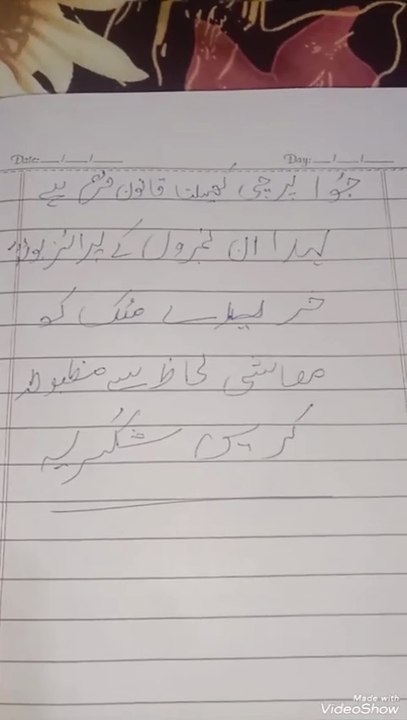 Date: __/__/__ Day: __/__/__
جُوا پرچی کھیلنا قانون جُرم ہے
لہذا ان نمبروں کے پرائز بونڈ
خرید لے ملک کو
معاشی لحاظ سے مظبوط
کریں شُکریہ
Made with
VideoShow